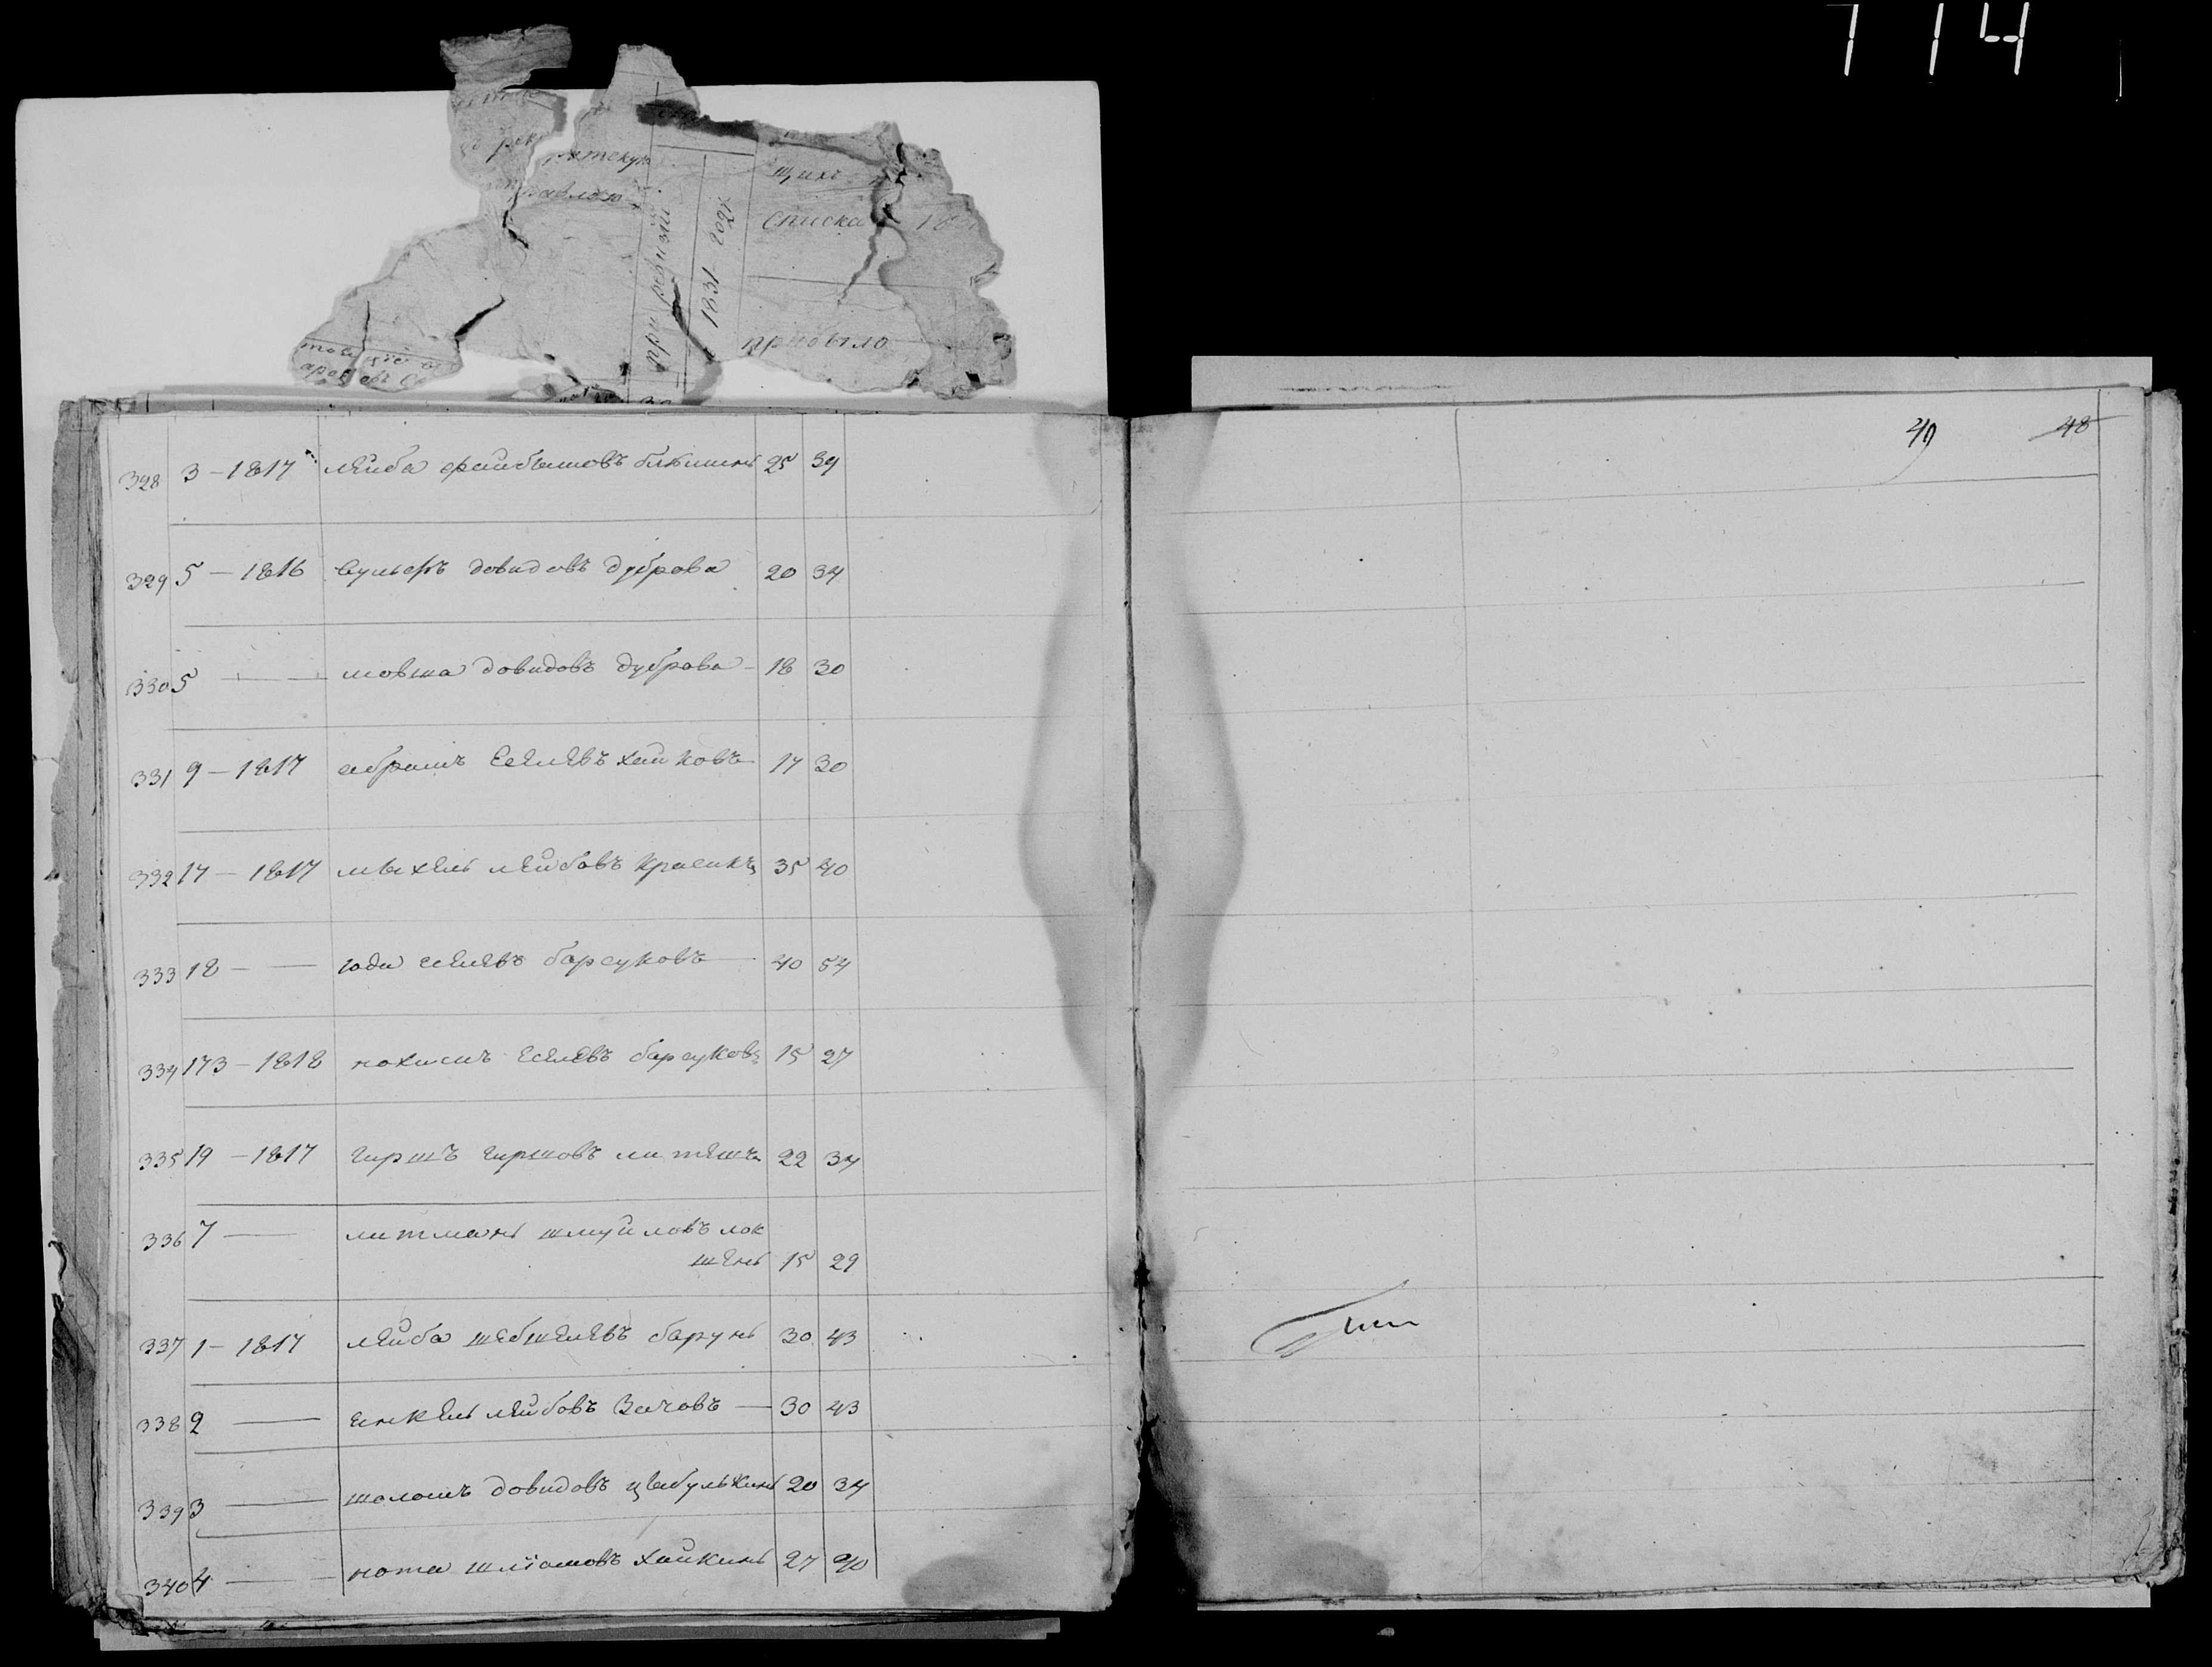 7 14
щихъ
списка
при ревизiи
1831 года
прибыло
49 48
328 3 – 1817 лейба файбышовъ 25 39
329 5 – 1816 вульфъ довидовъ дуброва 20 34
330 5 — мовша довидовъ дуброва – 18 30
331 9 – 1817 абрамъ еселевъ хайковъ 17 30
332 17 – 1817 мыхель лейбовъ красикъ 35 40
333 18 – — юда еселевъ барсуковъ — 40 54
334 173 – 1818 нохимъ еселевъ барсуковъ 15 27
335 19 – 1817 гиршъ гиршовъ 22 34
336 7 — литманъ шмуйловъ лок
шенъ 15 29
337 1 – 1817 лейба шебшелевъ барунъ 30 43
338 2 — енкель лейбовъ Зачовъ — 30 43
339 3 — шоломъ довидовъ цыбулькинъ 20 34
340 4 — нота шліомовъ хайкинъ 27 40